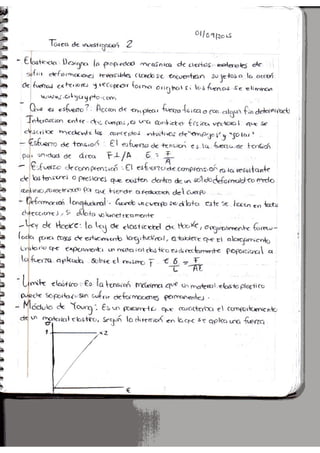 01/09/2015
Tarea de investigación 2
- Elasticidad: Designa la propiedad mecánica de ciertos materiales de
sufrir deformaciones reversibles cuando se encuentran sujetos a la acción
de fuerzas exteriores y recuperar forma original si las fuerzas se eliminan
- Que es esfuerzo?. Accion de emplear fuerza física o con algun fin determinado
Interacción entre dos cuerpos, es una
describe mediante los conceptos intuitivos de "empujar" y "jalar".
- Esfuerzo de tensión: El esfuerzo de tensión es la fuerza de tensión
por unidad de area F⊥/A = F/A
- Esfuerzo de compresión: El esfuerzo de compresión es la resultante
de las tensiones o presiones que existen dentro de un solido deformable o medio
continuo, que tiende a reducción del cuerpo
- Deformación longitudinal: Cuando un cuerpo se dilata este se hace en todas
direcciones, se dilata volumetricamente
- Ley de Hooke: la ley de elasticidad de Hooke, originalmente formu-
lada para casos de estiramiento longitudinal, establece que el alargamiento
unitario que experimenta un material elástico es directamente proporcional a
la fuerza aplicada sobre el mismo F
- Limite elástico: Es la tensión máxima que un material elastoplastico
puede soportar sin sufrir deformaciones permanentes.
- Módulo de Young: Es un parametro que caracteriza el comportamiento
de un material elástico, según la direccion en la que se aplica una fuerza